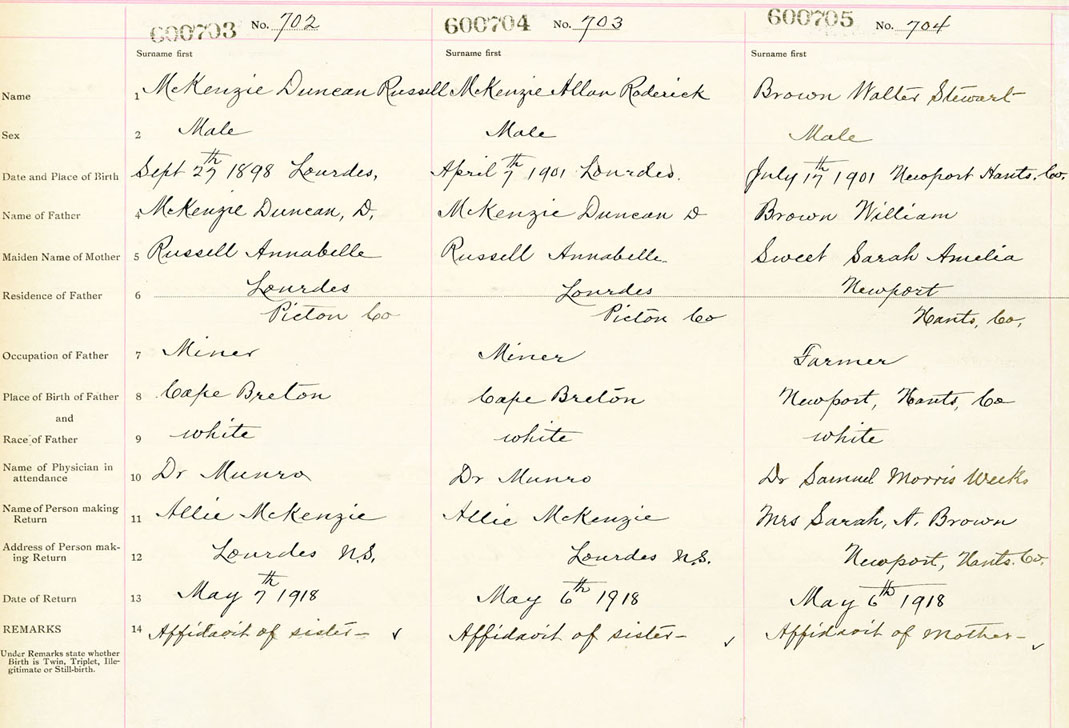 600703 No. 702 600704 No. 703 600705 No. 704
Surname first Surname first Surname first
Name 1 McKenzie Duncan Russell McKenzie Allan Roderick Brown Walter Stewart
Sex 2 Male Male Male
Date and Place of Birth Sept 27th 1898 Lourdes, April 7th 1901 Lourdes. July 17th 1901 Newport Hants. Co.
Name of Father 4 McKenzie Duncan, D. McKenzie Duncan D Brown William
Maiden Name of Mother 5 Russell Annabelle Russell Annabelle Sweet Sarah Amelia
Residence of Father 6 Lourdes Lourdes Newport
Picton Co Picton Co Hants, Co,
Occupation of Father 7 Miner Miner Farmer
Place of Birth of Father 8 Cape Breton Cape Breton Newport, Hants, Co
and
Race of Father 9 white white white
Name of Physician in
attendance 10 Dr Munro Dr Munro Dr Samuel Morris Weeks
Name of Person making
Return 11 Allie McKenzie Allie McKenzie Mrs Sarah, A. Brown
Address of Person mak-
ing Return 12 Lourdes N.S. Lourdes N.S. Newport, Hants. Co.
Date of Return 13 May 7th 1918 May 6th 1918 May 6th 1918
REMARKS 14 Affidavit of sister– ✓ Affidavit of sister– ✓ Affidavit of Mother– ✓
Under Remarks state whether
Birth is Twin, Triplet, Ille-
gitimate or Still-birth.